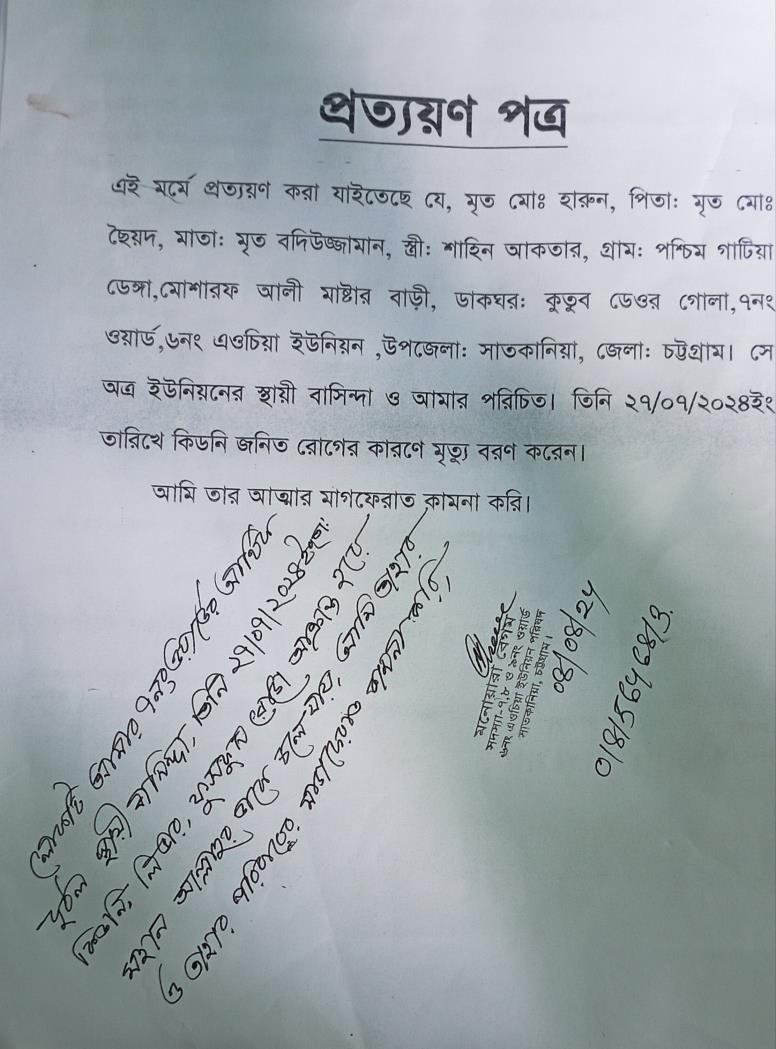 প্রত্যয়ণ পত্র
এই মর্মে প্রত্যয়ণ করা যাইতেছে যে, মৃত মোঃ হারুন, পিতা: মৃত মোঃ
ছৈয়দ, মাতা: মৃত বদিউজ্জামান, স্ত্রী: শাহিন আকতার, গ্রাম: পশ্চিম গাটিয়া
ডেঙ্গা,মোশারফ আলী মাষ্টার বাড়ী, ডাকঘর: কুতুব ডেওর গোলা,৭নং
ওয়ার্ড,৬নং এওচিয়া ইউনিয়ন ,উপজেলা: সাতকানিয়া, জেলা: চট্টগ্রাম। সে
অত্র ইউনিয়নের স্থায়ী বাসিন্দা ও আমার পরিচিত। তিনি ২৭/০৭/২০২৪ইং
তারিখে কিডনি জনিত রোগের কারণে মৃত্যু বরণ করেন।
আমি তার আত্মার মাগফেরাত কামনা করি।
লোকটি আমার ৭নং ওয়ার্ডের
স্থায়ী বাসিন্দা, তিনি ২৭/০৭/২০২৪ইং
কিডনি, লিভার, ফুসফুস রোগে আক্রান্ত হয়ে
মহান আল্লাহর কাছে চলে যায়, আমি তাহার
ও তাহার পরিবারের মাগফেরাত কামনা করি।
মনোয়ারা বেগম
সদস্যা-৭,৮ ও ৯নং ওয়ার্ড
৬নং এওচিয়া ইউনিয়ন পরিষদ
সাতকানিয়া, চট্টগ্রাম।